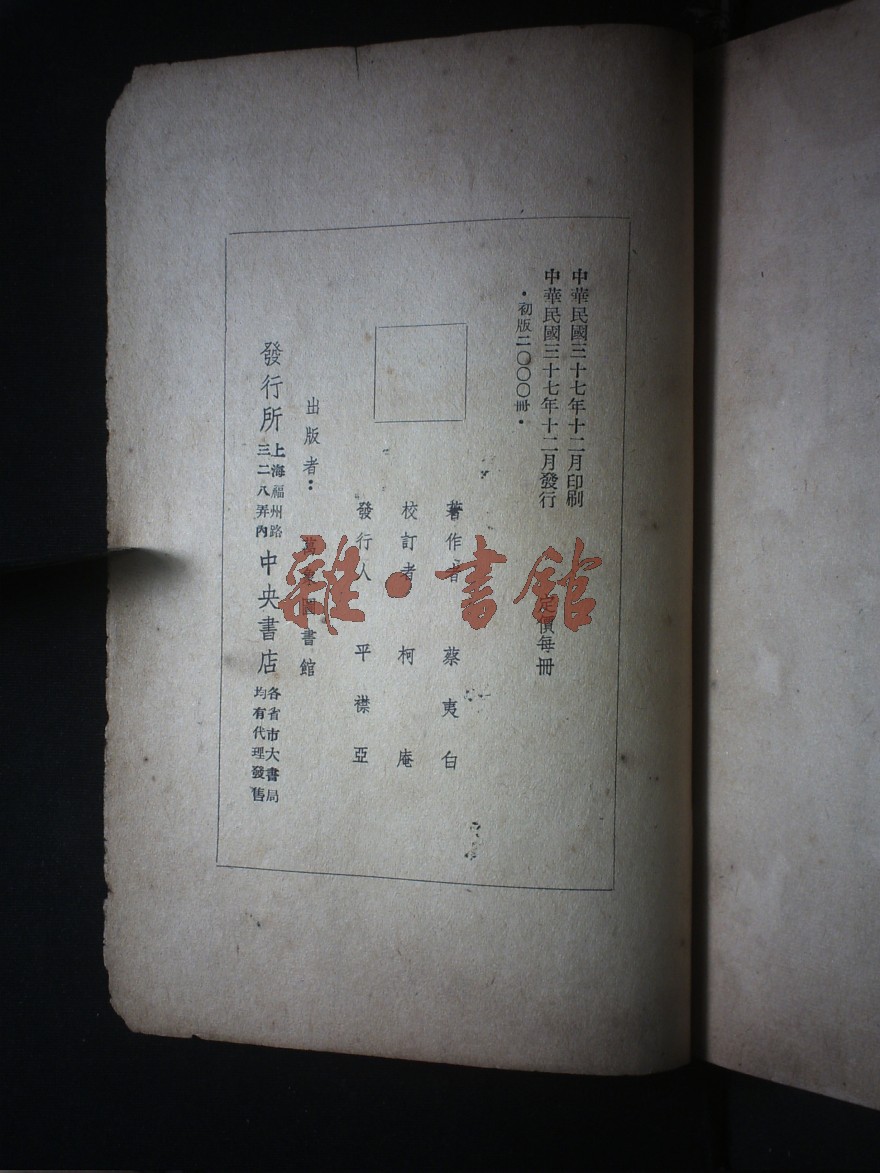 中華民國三十七年十二月印刷
中華民國三十七年十二月發行
·初版二〇〇〇冊·
定價每冊
著作者 蔡夷白
校訂者 柯庵
發行人 平襟亞
出版者： 圖書館
發行所 上海福州路三二八弄內 中央書店 各省市大書局均有代理發售
雜·書館